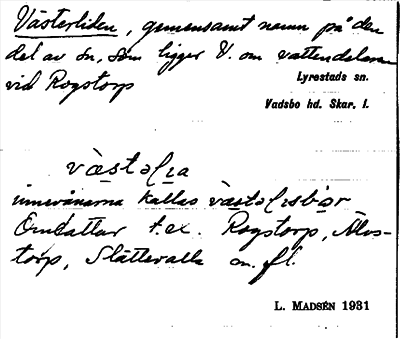 Västerliden, gemensamt namn på den
del av sn, som ligger V. om vattendelaren
vid Rogstorp
Lyrestads sn.
Vadsbo hd. Skar. l.
västəlia
innevånarna kallas västəlisbor
Omfattar t.ex. Rogstorp, Älvs-
torp, Slättevalla m. fl.
L. MADSÉN 1931